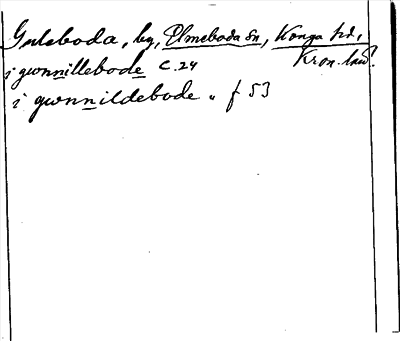 Guleboda, by, Elmeboda sn, Konga hd,
Kron. län?
i gwnnillebode C. 24
i gwnnildebode " f 53